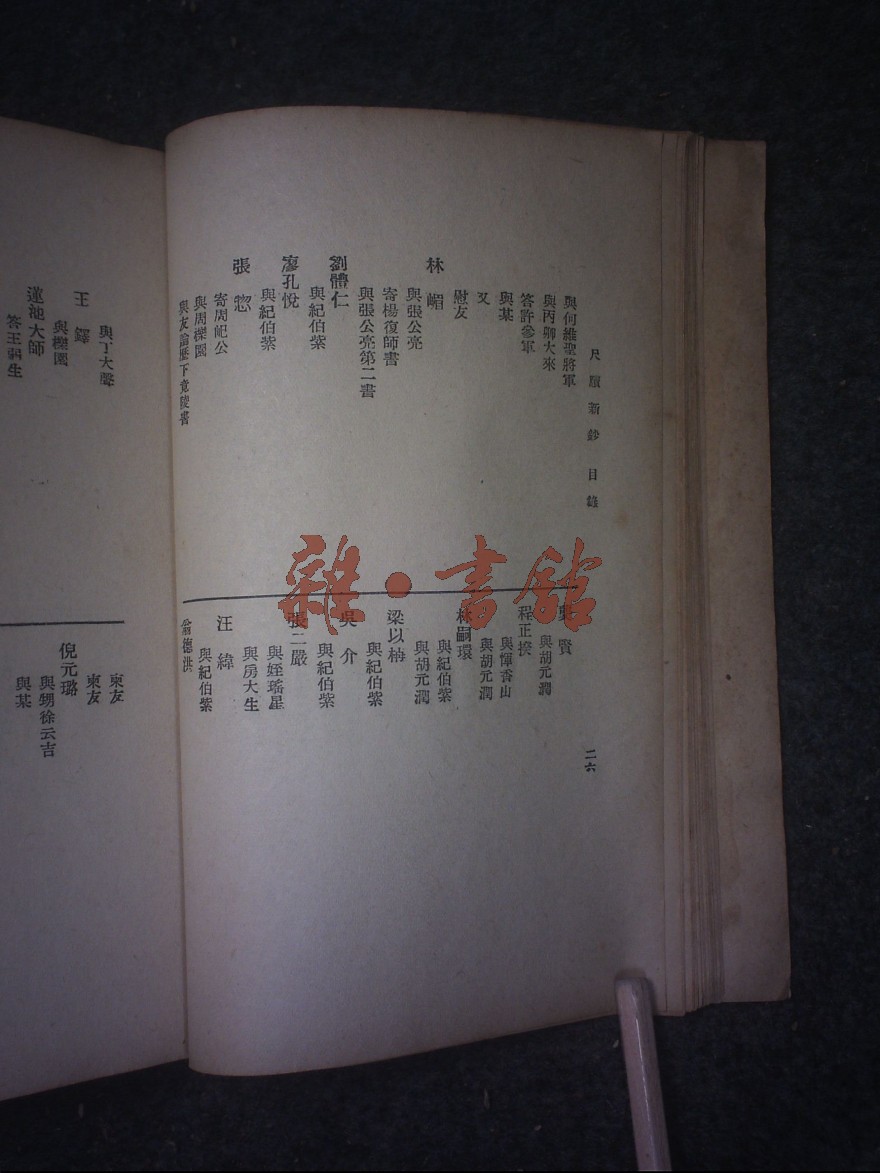 尺牘新鈔 目錄
二六
與何維聖將軍
與丙卿大來
答許參軍
與某
又
慰友
林嵋
與張公亮
寄楊復師書
與張公亮第二書
劉體仁
與紀伯紫
廖孔悅
與紀伯紫
張惣
寄周屺公
與周櫟園
與友論歷下竟陵書
賢
與胡元潤
程正揆
與惲香山
與胡元潤
林嗣環
與紀伯紫
與胡元潤
梁以柟
與紀伯紫
吳介
與紀伯紫
張二嚴
與姪瑤星
與房大生
汪緯
與紀伯紫
翁德洪
與丁大聲
王鐸
與櫟園
蓮池大師
答王弱生
柬友
柬友
倪元璐
與甥徐云吉
與某
雜·書館